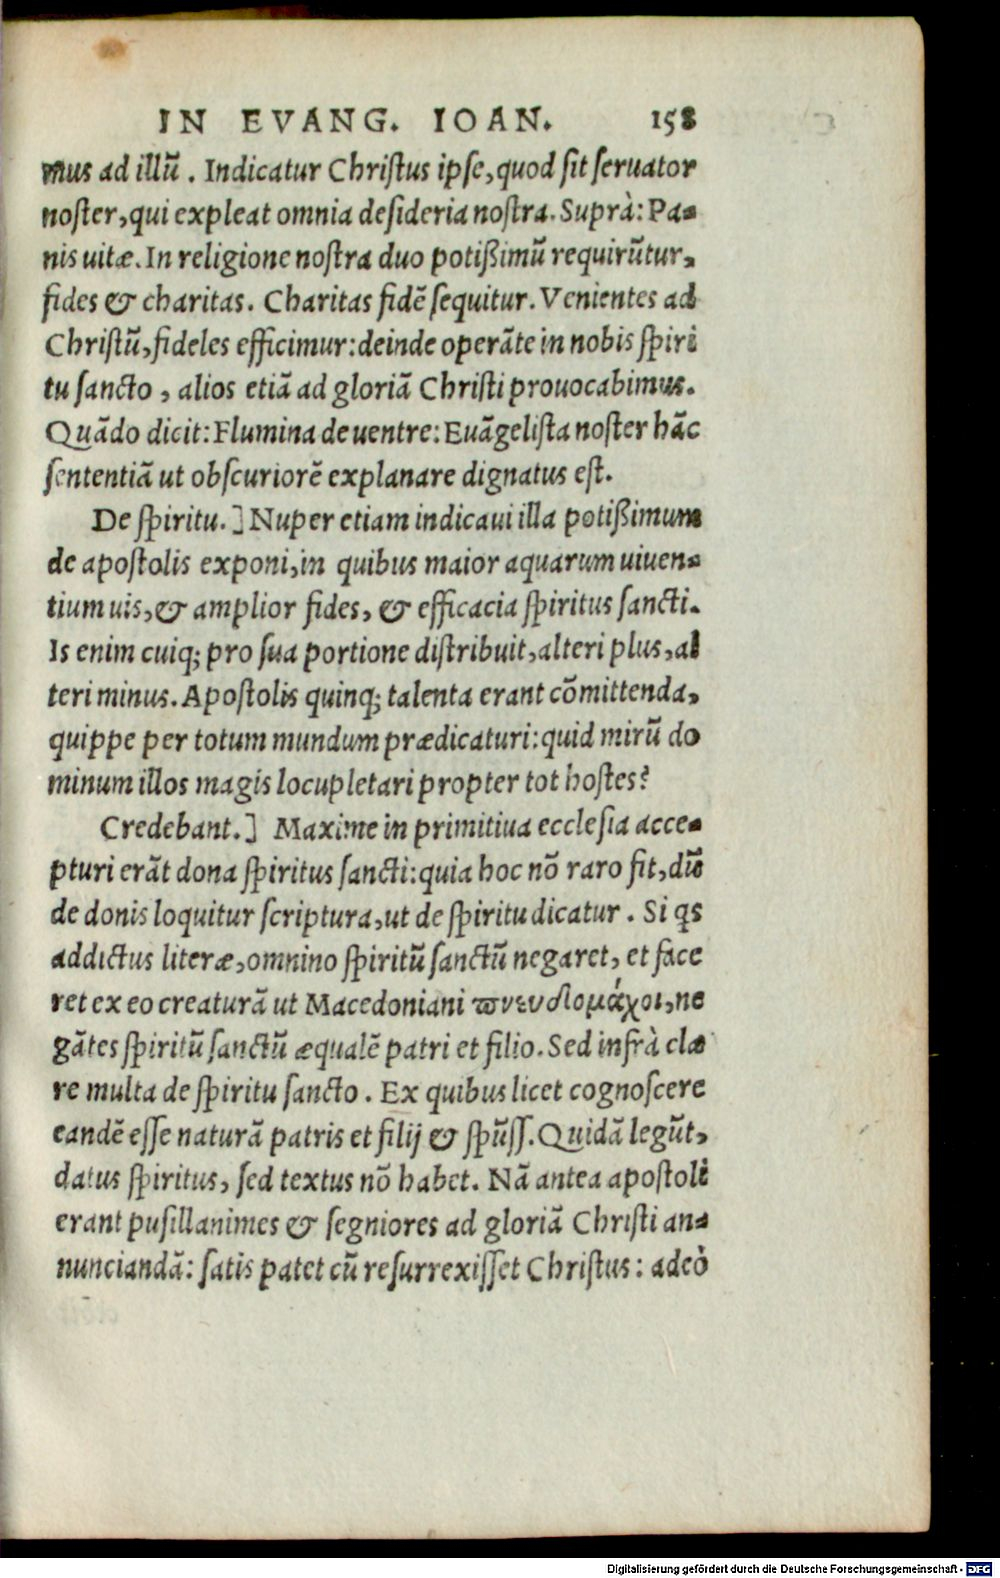 IN EVANG. IOAN. 158
mus ad illũ. Indicatur Christus ipse, quod sit seruator
noster, qui expleat omnia desideria nostra. Suprà: Pa-
nis uitæ. In religione nostra duo potißimũ requirũtur,
fides & charitas. Charitas fidẽ sequitur. Venientes ad
Christũ, fideles efficimur: deinde operãte in nobis spiri
tu sancto, alios etiã ad gloriã Christi prouocabimus.
Quãdo dicit: Flumina de uentre: Euãgelista noster hãc
sententiã ut obscuriorẽ explanare dignatus est.
De spiritu.] Nuper etiam indicaui illa potißimum
de apostolis exponi, in quibus maior aquarum uiuen-
tium uis, & amplior fides, & efficacia spiritus sancti.
Is enim cuiq; pro sua portione distribuit, alteri plus, al
teri minus. Apostolis quinq; talenta erant cõmittenda,
quippe per totum mundum prædicaturi: quid mirũ do
minum illos magis locupletari propter tot hostes?
Credebant.] Maxime in primitiua ecclesia acce-
pturi erãt dona spiritus sancti: quia hoc nõ raro fit, dũ
de donis loquitur scriptura, ut de spiritu dicatur. Si qs
addictus literæ, omnino spiritũ sanctũ negaret, et face
ret ex eo creaturã ut Macedoniani πνευδομάχοι, ne
gãtes spiritũ sanctũ æqualẽ patri et filio. Sed infrà cla
re multa de spiritu sancto. Ex quibus licet cognoscere
eandẽ esse naturã patris et filij & spũss. Quidã legũt,
datus spiritus, sed textus nõ habet. Nã antea apostoli
erant pusillanimes & segniores ad gloriã Christi an-
nunciandã: satis patet cũ resurrexisset Christus: adeò
Digitalisierung gefördert durch die Deutsche Forschungsgemeinschaft - DFG